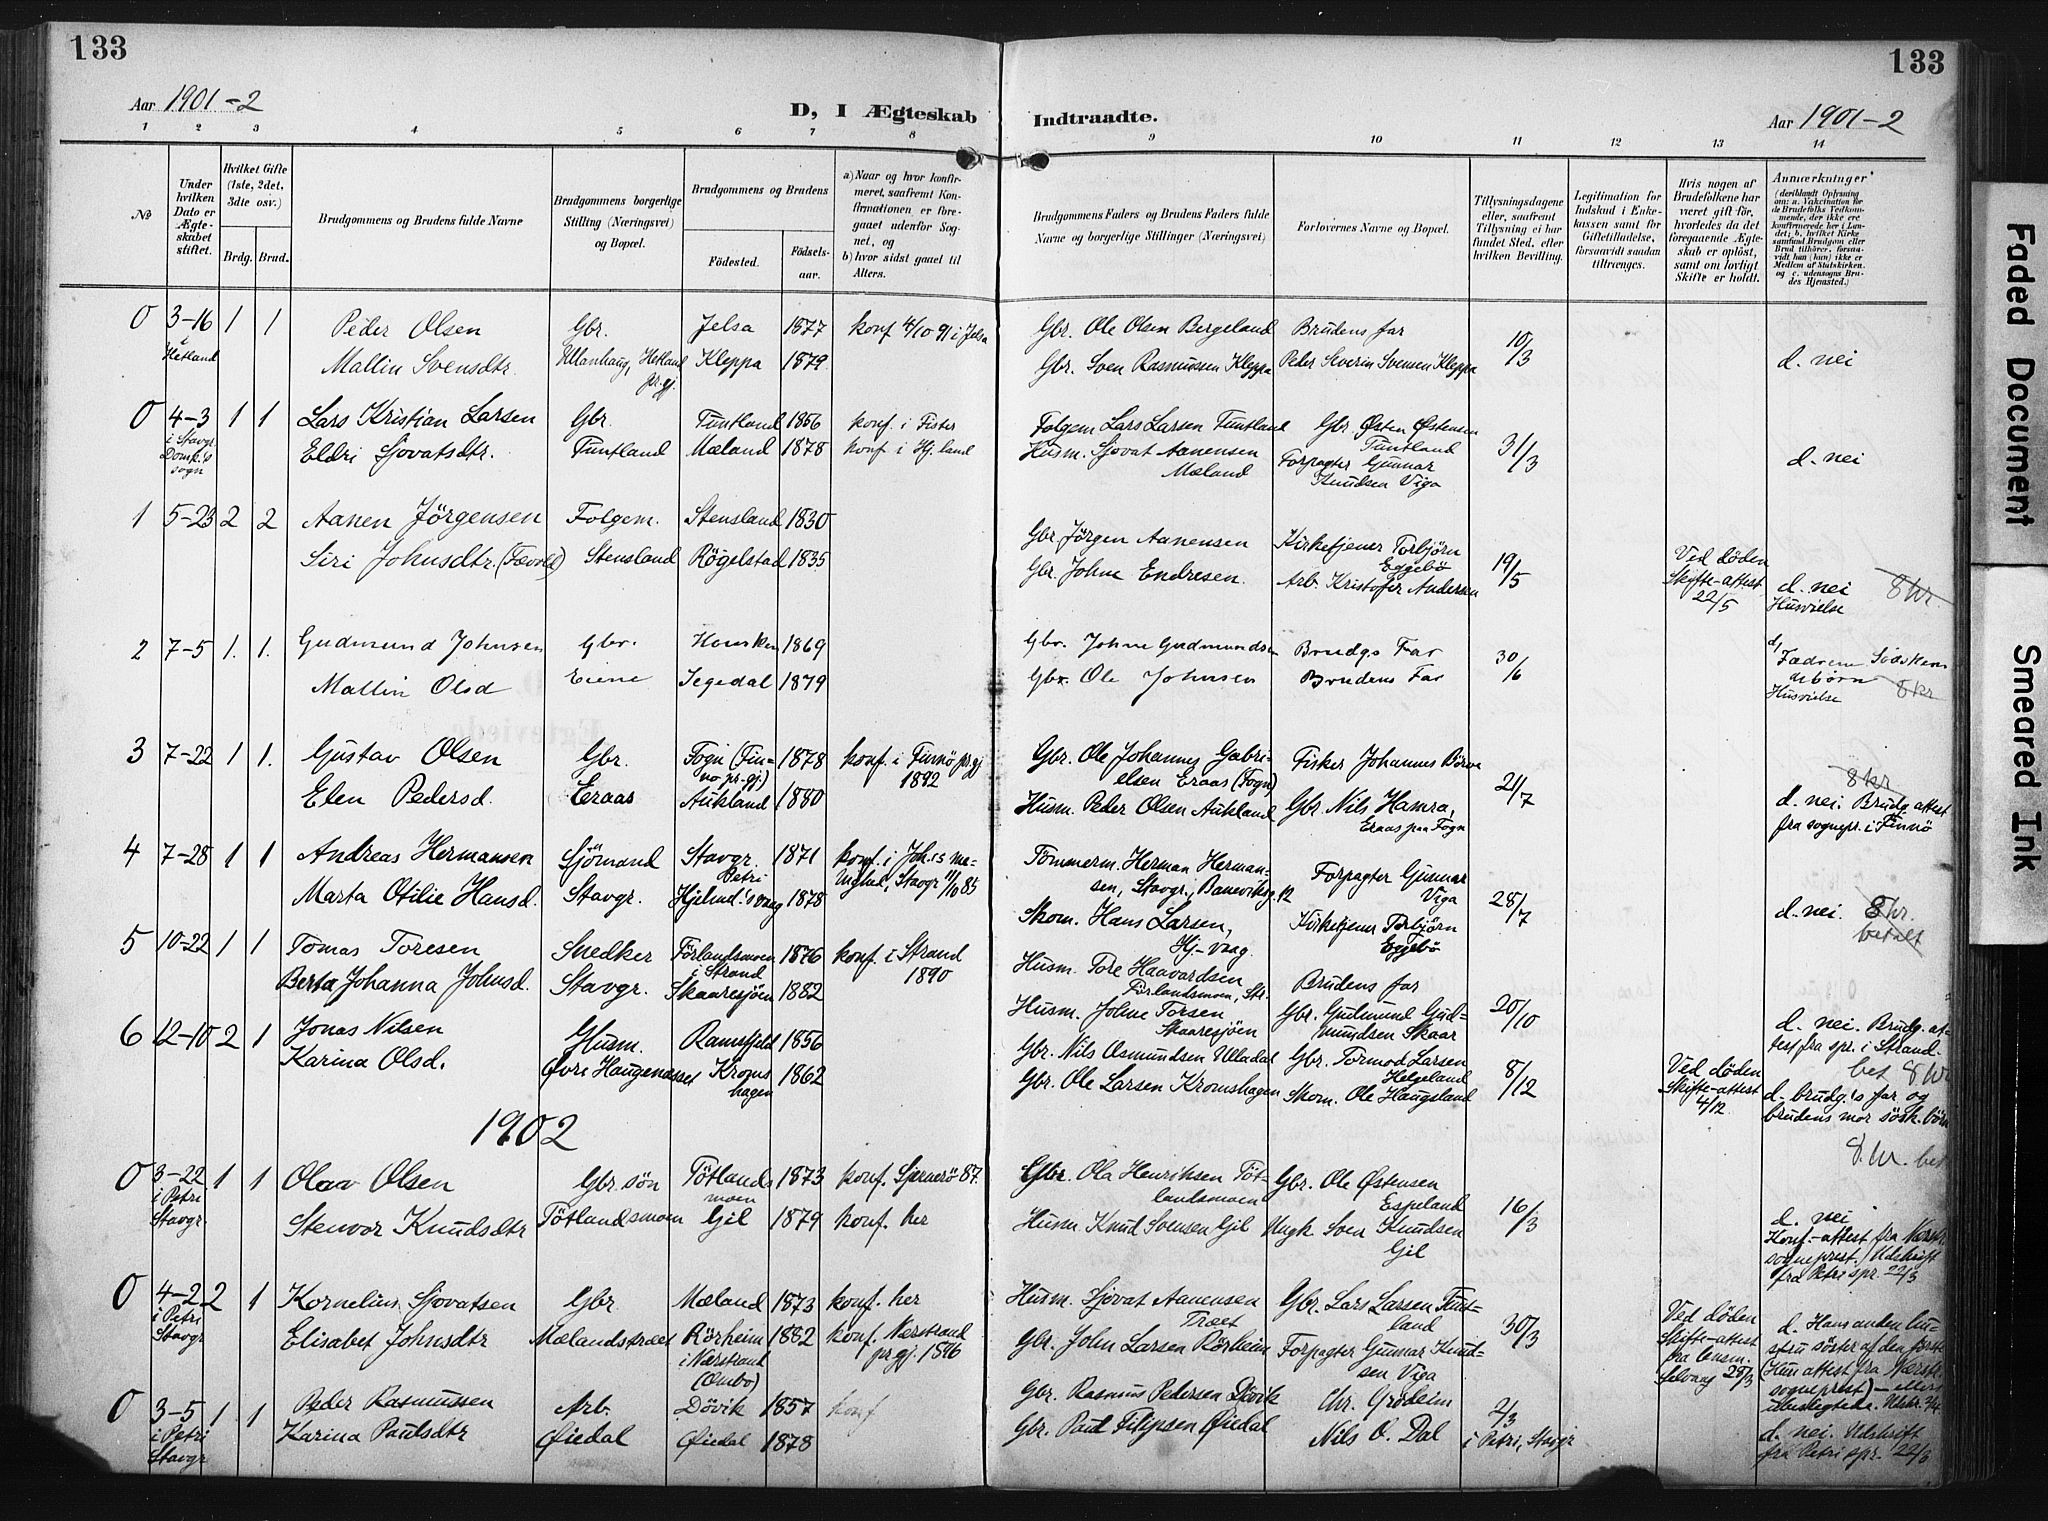 133
133
Aar 1901-2
D, I Ægteskab Indtraadte.
Aar 1901-2
1 2 3 4 5 6 7 8 9 10 11 12 13 14
No
Under hvilken Dato er Ægteskabet stiftet.
Hvilket Gifte (1ste, 2det, 3die osv.)
Brdg. Brud.
Brudgommens og Brudens fulde Navne
Brudgommens borgerlige Stilling (Næringsvei) og Bopæl.
Brudgommens og Brudens
Fødested.
Fødselsaar.
a) Naar og hvor konfirmeret, saafremt Konfirmationen er foregaaet udenfor Sognet, og
b) hvor sidst gaaet til Alters.
Brudgommens Faders og Brudens Faders fulde Navne og borgerlige Stillinger (Næringsvei)
Forlovernes Navne og Bopæl.
Tillysningsdagene eller, saafremt Tillysning ei har fundet Sted, efter hvilken Bevilling.
Legitimation for Indskud i Enkekassen samt for Giftetilladelse, forsaavidt saadan tiltrænges.
Hvis nogen af Brudefolkene har været gift før, hvorledes da det foregaaende Ægteskab er opløst, samt om lovligt Skifte er holdt.
Anmærkninger (deriblandt Oplysning om: a. Vakcination for de Brudefolks Vedkommende, der ikke ere konfirmerede her i Landet; b. hvilket Kirkesamfund Brudgom eller Brud tilhører, forsaavidt han (hun) ikke er Medlem af Statskirken, og c. udensogns Brudes Hjemsted.)
0 3-16 i Hetland 1 1 Peder Olsen Gbr. Jelsa 1877 konf 4/10 91 i Jelsa Gbr. Ole Olsen Bergeland Brudens far 10/3
Mallin Svensdtr. Ullanhaug, Hetland pr.gj. Kleppa 1879 Gbr. Sven Rasmussen Kleppa Peder Severin Svensen Kleppa d. nei
0 4-3 i Stavgr. Domk.'s sogn 1 1 Lars Kristian Larsen Gbr. Tuntland 1856 konf. i Fister Folgem Lars Larsen Tuntland Gbr. Østen Østensen Tuntland 31/3
Eldri Sjovatsdtr. Tuntland Mæland 1878 konf i Hj.land Husm. Sjovat Aanensen Mæland Forpagter Gunnar Knudsen Viga d. nei
1 5-23 2 2 Aanen Jörgensen Folgem. Stensland 1830 Gbr Jörgen Aanensen Kirketjener Torbjörn Eggebö 19/5 Ved döden Skifte-attest 22/5
Siri Johnsdtr. (Fævold) Stensland Rögelstad 1835 Gbr. Johne Endresen. Arb. Kristofer Andersen d. nei Husvielse 8 kr.
2 7-5 1. 1. Gudmund Johnsen Gbr. 1869 Gbr. Johne Gudmundsen Brudgs Far 30/6
Mallin Olsd Eiene Tegedal 1879 Gbr. Ole Johnsen Brudens Far d/ Fædrene Södskendebörn Husvielse 8 kr
3 7-22 1 1. Gustav Olsen Gbr. Fogn (Finnö pr.gj) 1878 konf. i Finnö pr.gj 1892 Gbr. Ole Johannes Gabrielsen Eraas (Fogn) Fisker Johannes 21/7
Elen Pedersd. Eraas Aukland 1880 Husm. Peder Olsen Aukland Gbr. Nils Hamra, Eraas paa Fogn 8 kr d. nei. Brudg. attest fra sognepr. i Finnö
4 7-28 1 1 Andreas Hermansen Sjömand Stavgr. Petri 1871 konf. i Joh.s menighed, Stavgr 11/10 85 Tömmerm. Herman Hermansen, Stavgr, Baneviksg. 12 Forpagter Gunnar Viga 28/7
Marta Otilie Hansd. Stavgr. Hjelmel.'s vaag 1878 Skom. Hans Larsen, Hj.-vaag Kirketjener Torbjörn Eggebö d. nei. 8 kr. betalt
5 10-22 1 1 Tomas Toresen Snedker Förlandsmoen i Strand 1876 konf. i Strand 1890 Husm. Tore Haavardsen Förlandsmoen, Str. Brudens far 20/10
Berta Johanna Johnsd. Stavgr. Skaaresjöen 1882 Husm. Johne Torsen Skaaresjöen Gbr. Gudmund Gudmundsen Skaar d. nei. Brudg. attest fra spr. i Strand. bet 8 kr
6 12-10 2 1 Jonas Nilsen Husm. Ramsfjeld 1856 Gbr. Nils Osmundsen Ulladal Gbr. Tormod Larsen Helgeland 8/12 Ved döden Skifte-attest 4/12
Karina Olsd. Övre Haugenæsset Kromshagen 1862 Gbr. Ole Larsen Kromshagen Skom. Ole Haugsland d. brudg.'s far og brudens mor sösk. börn 8 kr. bet
1902
0 3-22 i Petri Stavgr. 1 1 Olav Olsen Gbr. sön Tötlandsmoen 1873 konf. Sjernerö 87. Gbr. Ola Henriksen Tötlandsmoen Gbr. Ole Østensen Espeland 16/3
Stenvor Knudsdtr Tötlandsmoen Gil 1879 konf. her Husm. Knud Svensen Gil Ungk. Sven Knudsen Gil d. nei Konf.-attest fra Nærstr. sogneprest. Udskrift fra Petri spr. 22/3
0 4-2 i Petri Stavgr 2 1 Kornelius Sjovatsen Gbr. Mæland 1873 konf. her Husm. Sjovat Aanensen Træet Gbr. Lars Larsen Tuntland 30/3 Ved döden Skifte-attest fra lensm. 29/3
Elisabet Johnsdtr Mælandstræet Rörheim i Nærstrand (Ombo) 1882 konf. Nærstrand pr.gj. 1896 Gbr. John Larsen Rörheim Forpagter Gunnar Knudsen Viga d. Hans anden hustru söster af den förste (Hun attest fra Nærstr. sogneprest)
0 3-5 i Petri Stavgr 1 1 Peder Rasmussen Arb. Dövik 1857 konf Gbr. Rasmus Pedersen Dövik Chr. Grödeim 2/3 i Petri, Stavgr
Karina Paulsdtr Øiedal Øiedal 1878 Gbr. Paul Filipsen Øiedal Nils O. Dal d. nei. Udskrift fra Petri spr. 22/3
Faded Document
Smeared Ink